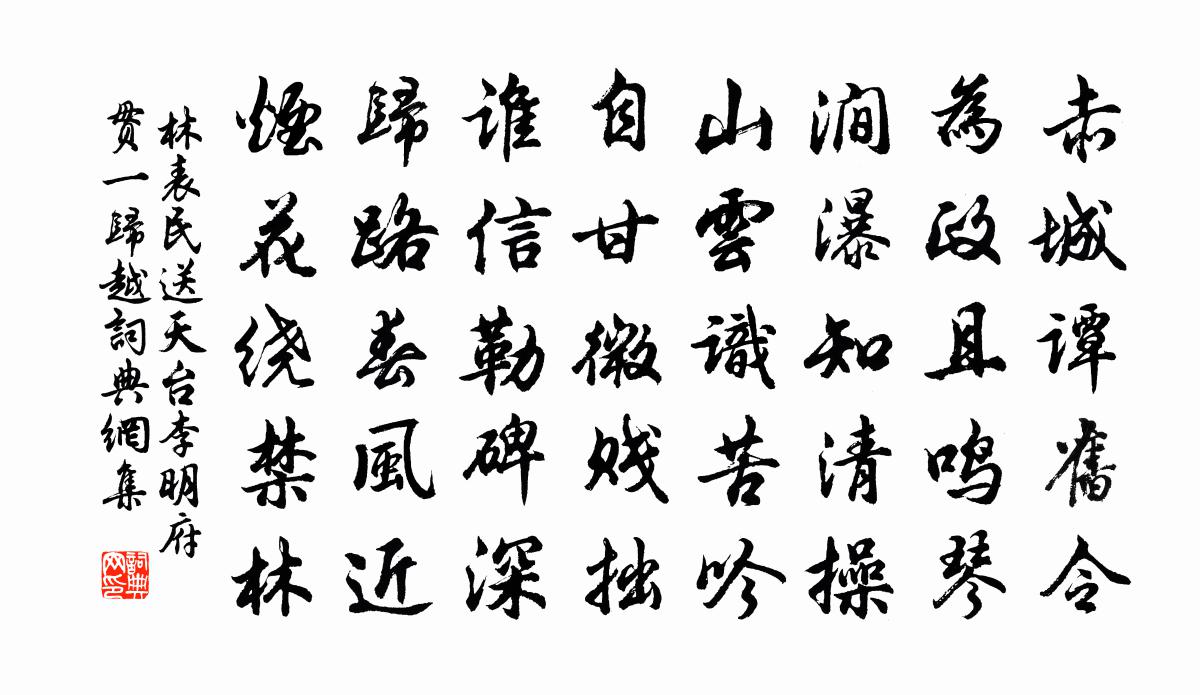 赤城谭舊令
為政且鸣琴
澗瀑知清操
山雲識苦吟
自甘微贱拙
谁信勒碑深
歸路春風近
煙花绕禁林
林表民送天台李明府
贯一歸越詞典網集
詞典网印